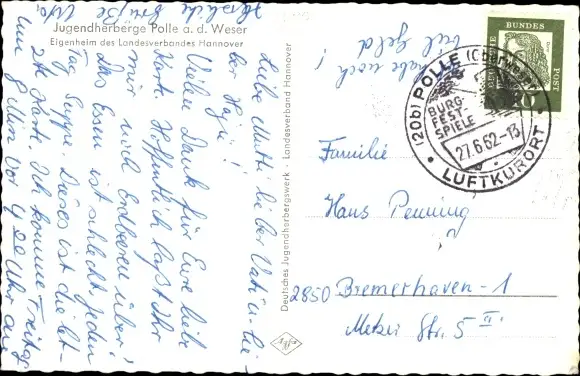 Jugendherberge Polle a. d. Weser
Eigenheim des Landesverbandes Hannover
Liebe Mutti, lieber Vati u. lie-
ber Hajü!
Vielen Dank für Eure liebe
Karte. Hoffentlich laßt Ihr
mir noch Erdbeeren über!
Das Essen ist schlecht jeden
Tag Suppe. Dieses ist die let-
zte Karte. Ich komme Freitag
um 8 Min vor 4 20 Uhr an
Herzliche Grüße
habe noch
viel Geld
!
Deutsches Jugendherbergswerk - Landesverband Hannover
Agfa
DEUTSCHE BUNDES POST
(20b) POLLE (Oberweser)
BURG-
FEST-
SPIELE
27.6.62-13
LUFTKURORT
Familie
Hans Penning
2850 Bremerhaven-1
Metzer Str. 5 II.